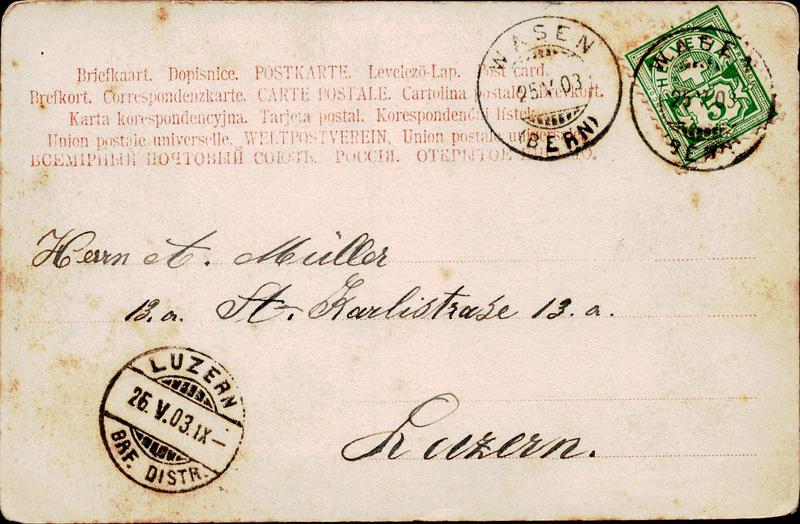 Briefkaart. Dopisnice. POSTKARTE. Levelező-Lap. Post card.
Brefkort. Correspondenzkarte. CARTE POSTALE. Cartolina postale.
Karta korespondencyjna. Tarjeta postal. Korespondenční lístek.
Union postale universelle. WELTPOSTVEREIN. Union postale
ВСЕМІРНЫЙ ПОЧТОВЫЙ СОЮЗЪ. РОССІЯ. ОТКРЫТОЕ
WASEN
25.V.03
(BERN)
HELVETIA
5
WASEN
25.V.03
BERN
Herrn A. Müller
13.a. St. Karlistraße 13.a.
Luzern.
LUZERN
26.V.03.IX-
BRF. DISTR.